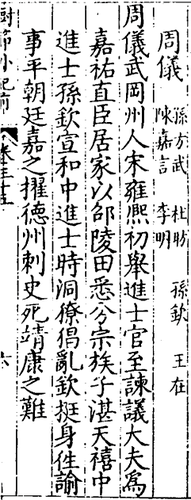 周儀
孫方武　杜昉　孫欽　王在
陳嘉言　李明
周儀武岡州人宋雍熙初舉進士官至諫議大夫爲
嘉祐直臣居家以邵陵田悉分宗族子湛天禧中
進士孫欽宣和中進士時洞獠倡亂欽挺身往諭
事平朝廷嘉之擢德州刺史死靖康之難